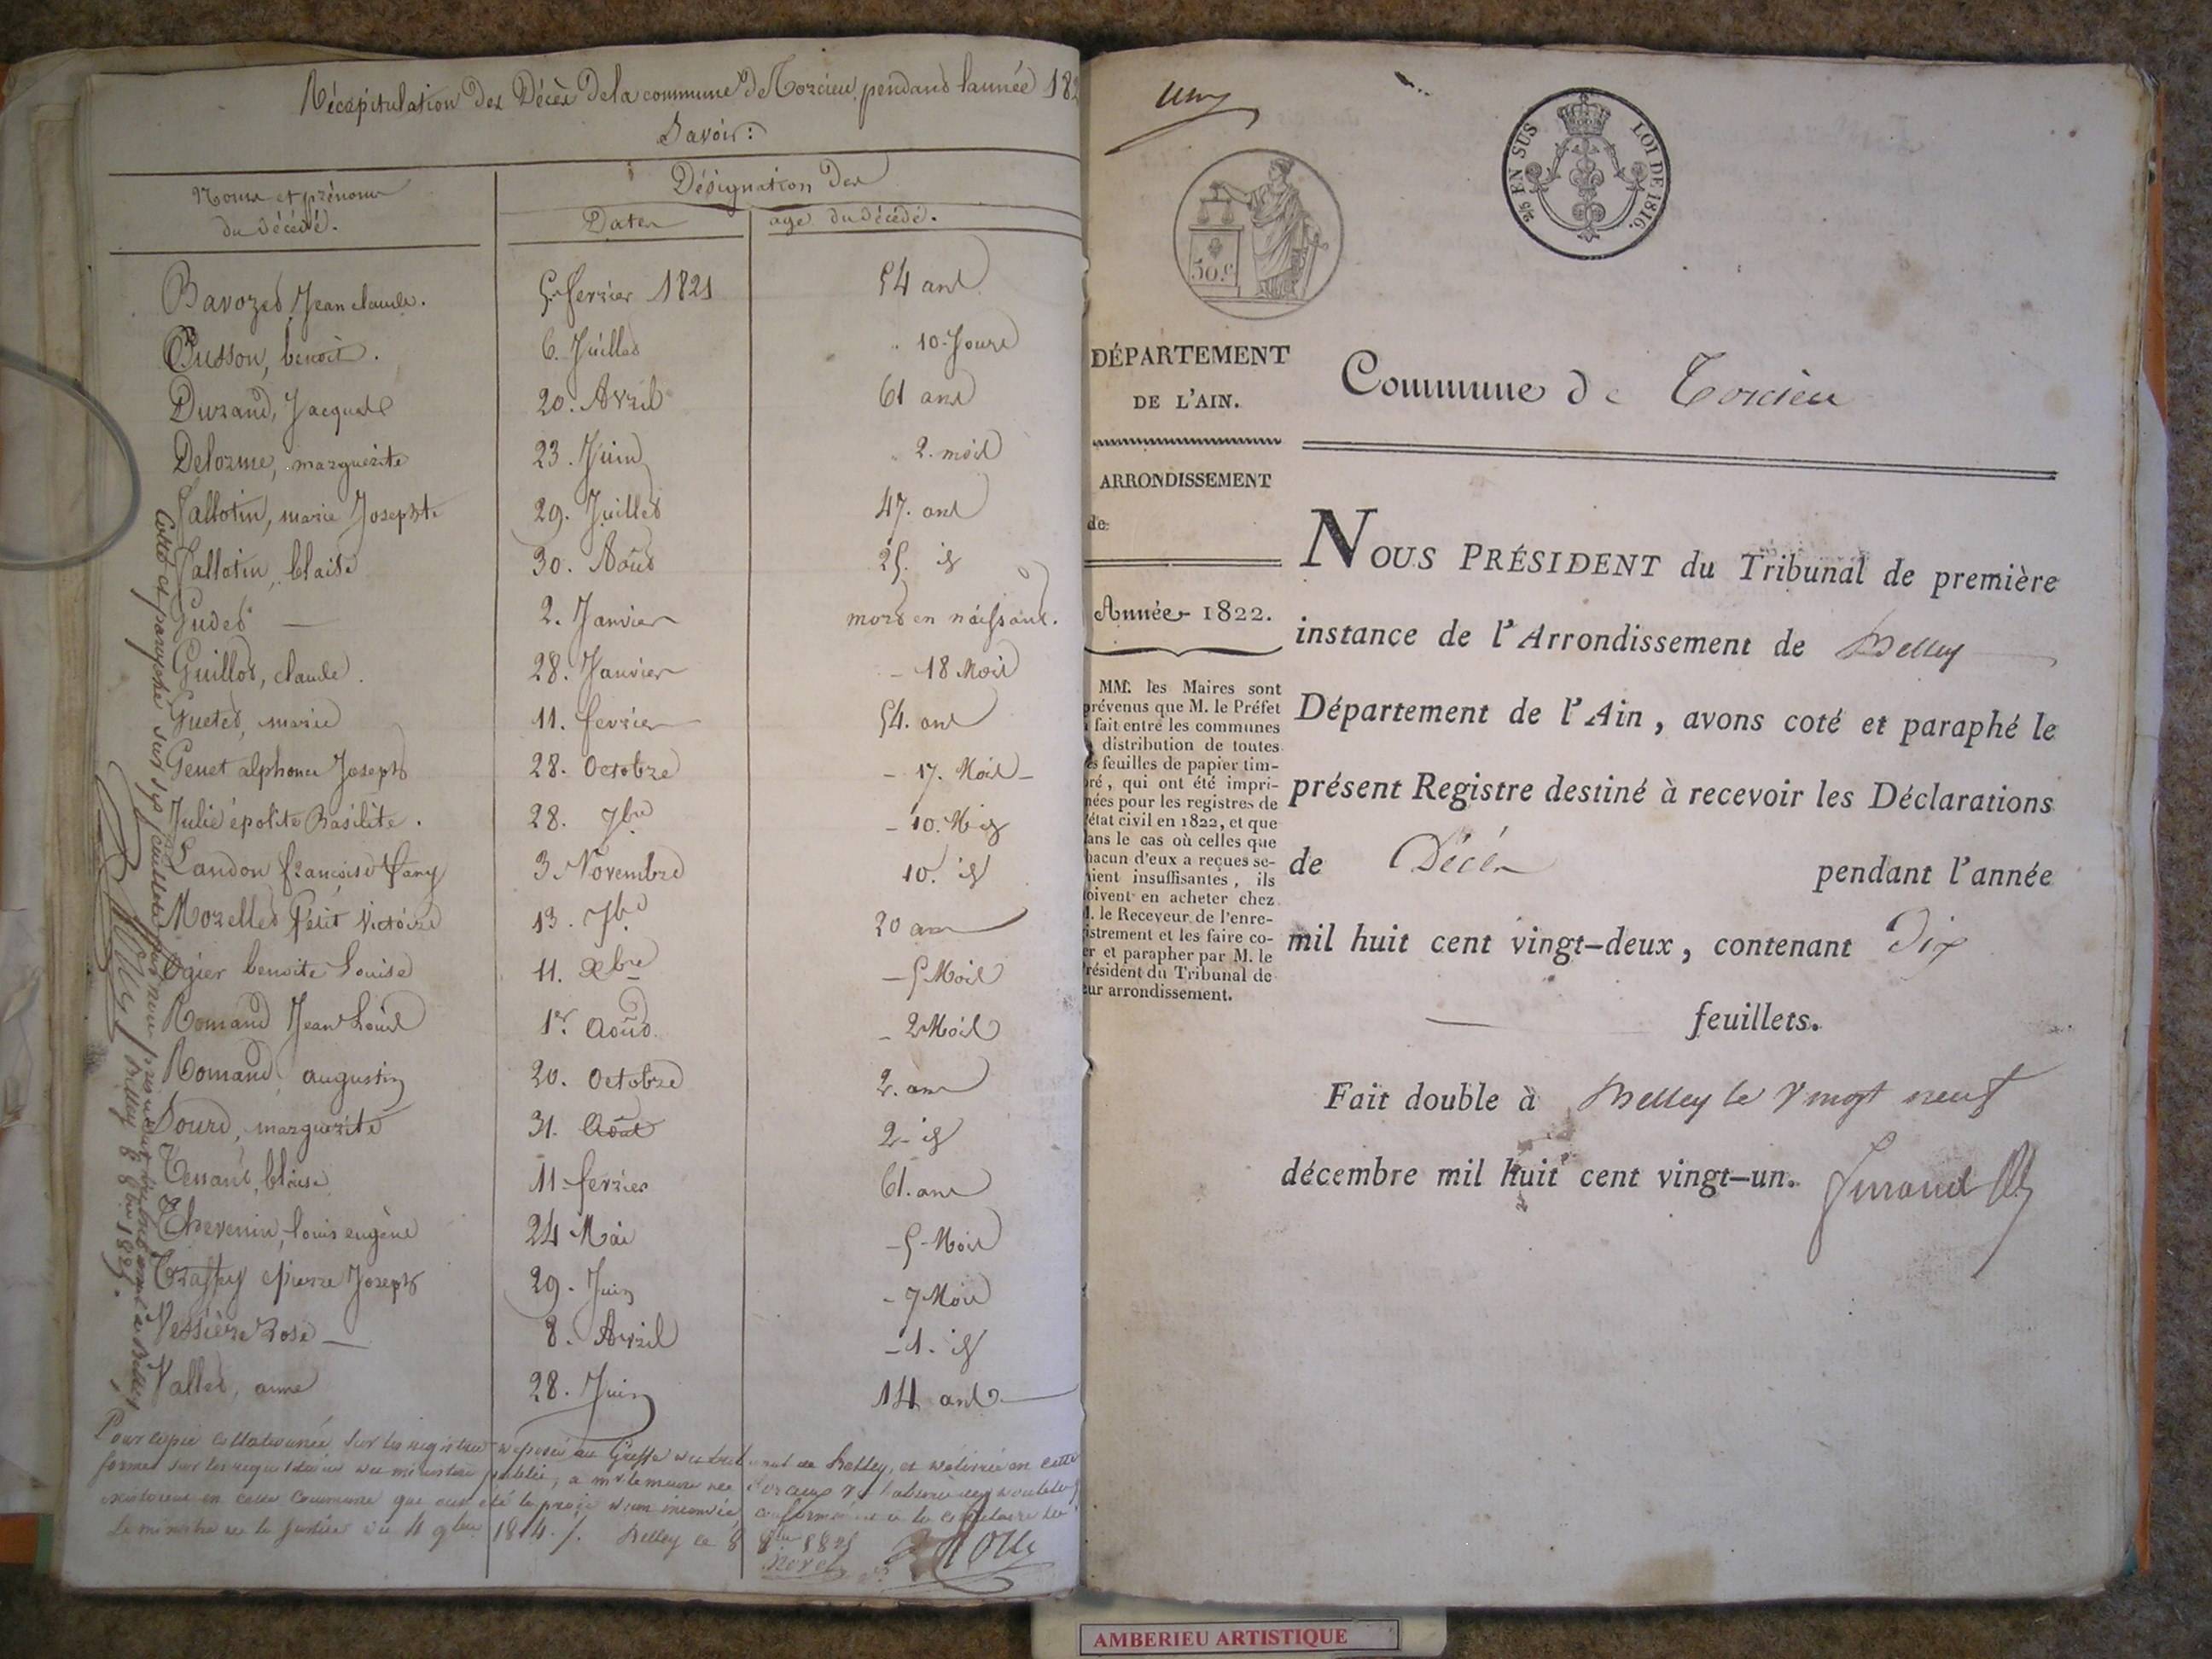 Récapitulation des Décès de la commune de Torcieu pendant l'année 182
Savoir:
Noms et prénoms
du décédé.
Désignation des
Dates
age du décédé.
Bavozet Jean claude. 5 fevrier 1821 54 ans
Busson, benoit. 6. Juillet 10. Jours
Durand, Jacques 20. Avril 61 ans
Delorme, marguerite 23. Juin 2. mois
Fallotin, marie Josephte 29. Juillet 47. ans
Fallotin, blaise 30. Août 25. id
Gudet — 2. Janvier mort en naissant.
Guillot, claude. 28. Janvier - 18 Mois
Guetet, marie 11. fevrier 54. ans
Genet alphonse Joseph 28. Octobre - 17. Mois -
Julie épolite Basilite. 28. 7bre - 10. Mois
Landon françoise fany 3 Novembre 10. id
Morellet Petit Victoire 13. 7bre 20 ans
Ogier benoite Louise 11. Xbre - 5 Mois
Romand Jean Louis 1er. Août - 2 Mois
Romand augustin 20. Octobre 2. ans
Sourd, marguerite 31. Août 2 - id
Tenant, blaise 11 fevrier 61. ans
Thevenin, louis eugène 24 Mai - 5 - Mois
Traffey Pierre Joseph 29. Juin - 7 Mois
Vessière Rose — 8. Avril - 1. id
Vallet, anne 28. Juin 14 ans
Cotté et paraphé sur feuillets par nous président du tribunal civil de Belley
Belley 8 8bre 1825.
Pour copie collationnée sur les registres déposés au Greffe du tribunal de Belley, et délivrée en cette
forme sur les requisitions du ministère public, a mr le maire de Torcieu
existoient en cette Commune que ont été la proie d'un incendie, conformément a la circulaire de
Le ministre de la Justice du 4 9bre 1814. Belley le 8 8bre 1825
Morel
DÉPARTEMENT
DE L'AIN.
ARRONDISSEMENT
de
Année 1822.
MM. les Maires sont
prévenus que M. le Préfet
a fait entre les communes
la distribution de toutes
les feuilles de papier tim-
bré, qui ont été impri-
mées pour les registres de
l'état civil en 1822, et que
dans le cas où celles que
chacun d'eux a reçues se-
roient insuffisantes, ils
doivent en acheter chez
M. le Receveur de l'enre-
gistrement et les faire co-
ter et parapher par M. le
Président du Tribunal de
leur arrondissement.
50.c
25 EN SUS
LOI DE 1816.
Commune de Torcieu
NOUS PRÉSIDENT du Tribunal de première
instance de l'Arrondissement de Belley
Département de l'Ain, avons coté et paraphé le
présent Registre destiné à recevoir les Déclarations
de Décès pendant l'année
mil huit cent vingt-deux, contenant Dix
feuillets.
Fait double à Belley le vingt neuf
décembre mil huit cent vingt-un.
AMBERIEU ARTISTIQUE